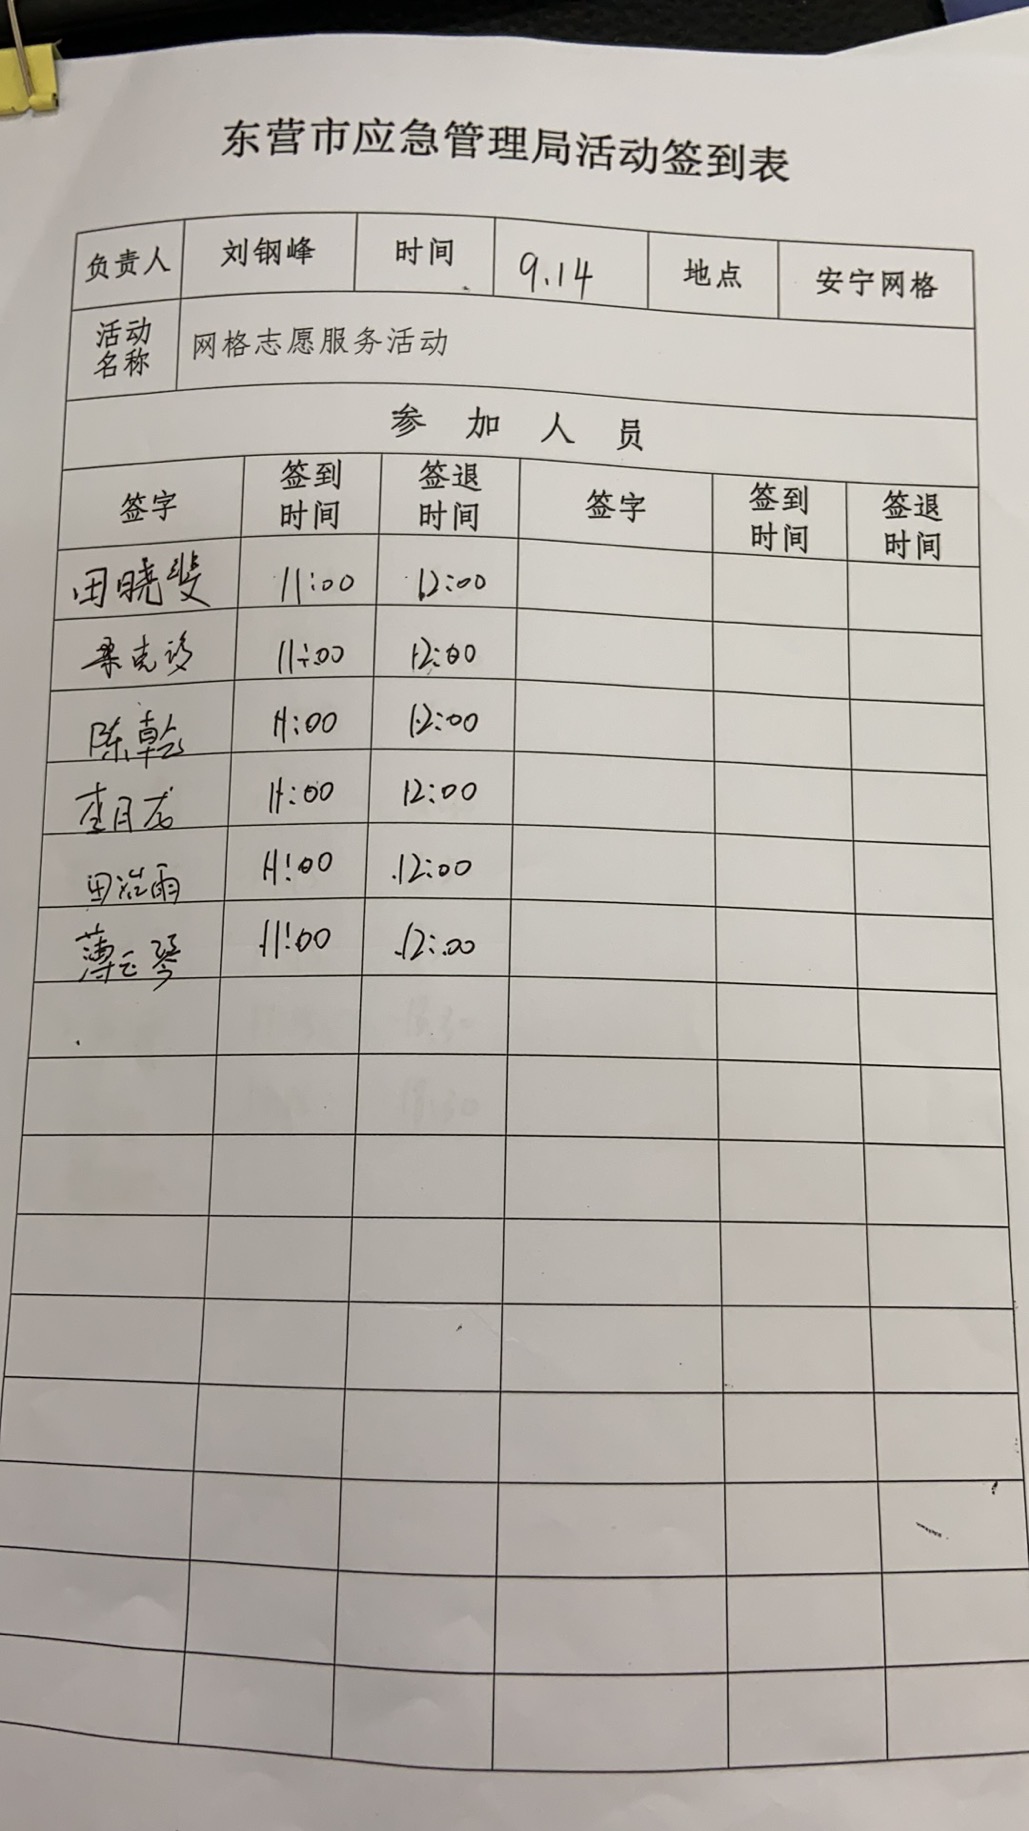 东营市应急管理局活动签到表
负责人 刘钢峰 时间 9.14 地点 安宁网格
活动名称 网格志愿服务活动
参加人员
签字 签到时间 签退时间 签字 签到时间 签退时间
田晓斐 11:00 12:00
11:00 12:00
陈乾 11:00 12:00
李月龙 11:00 12:00
田浩雨 11:00 12:00
薄云琴 11:00 12:00